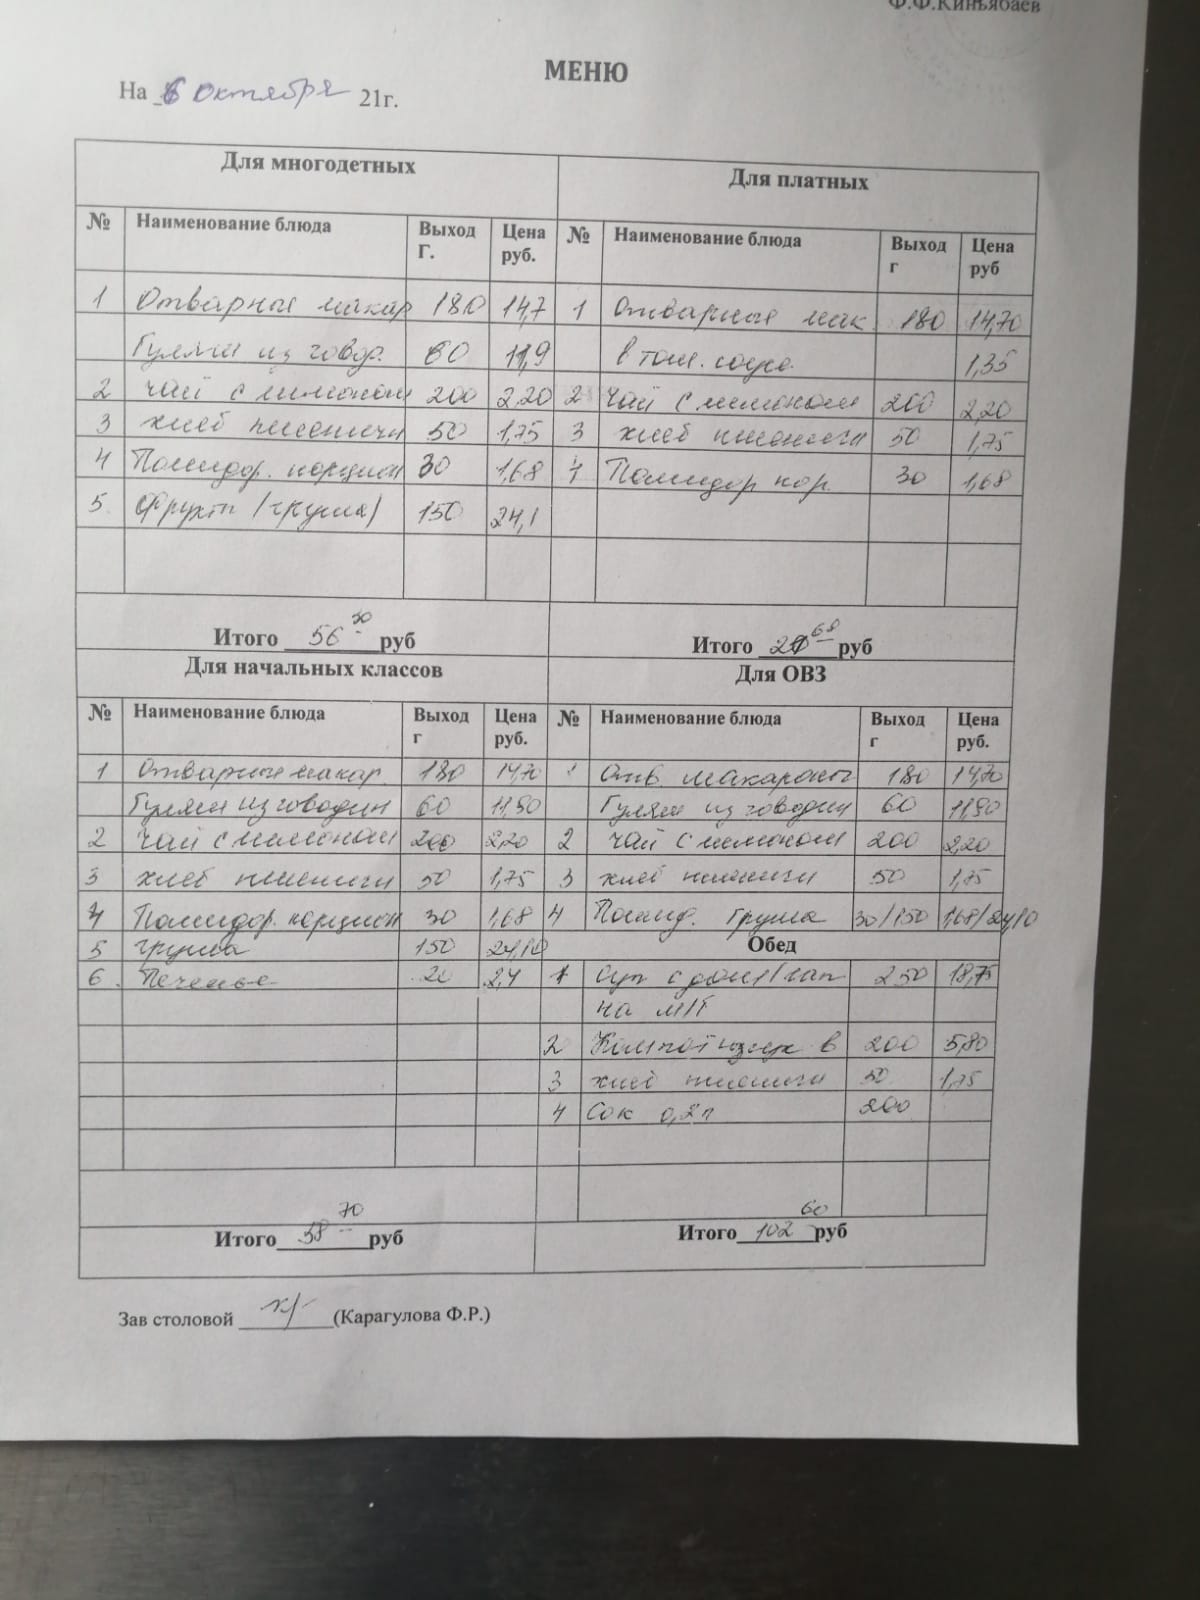 Ф.Ф.Киньябаев
МЕНЮ
На 6 октября 21г.
Для многодетных
№ Наименование блюда Выход Г. Цена руб.
1 Отварные макар 180 14,7
Гуляш из говор. 60 11,9
2 чай с лимоном 200 2,20
3 хлеб пшеничн 50 1,75
4 Помидор. порцион 30 1,68
5. Фрукты (груша) 150 24,1
Итого 56 30 руб
Для платных
№ Наименование блюда Выход г Цена руб
1 Отварные мак 180 14,70
в том. соусе. 1,35
2 Чай с лимоном 200 2,20
3 хлеб пшенични 50 1,75
4 Помидор пор. 30 1,68
Итого 21 68 руб
Для начальных классов
№ Наименование блюда Выход г Цена руб.
1 Отварные макар 180 14,70
Гуляш из говядин 60 11,90
2 Чай с лимоном 200 2,20
3 хлеб пшенични 50 1,75
4 Помидор. порцион 30 1,68
5 груша 150 24,10
6. Печенье 20 2,4
Итого 58 70 руб
Для ОВЗ
№ Наименование блюда Выход г Цена руб.
1 Отв. макароны 180 14,70
Гуляш из говядин 60 11,90
2 чай с лимоном 200 2,20
3 хлеб пшенични 50 1,75
4 Помид. груша 30/150 1,68/24,10
Обед
1 Суп с дом/лап 250 18,75
на м/б
2 Компот 200 5,80
3 хлеб пшенични 50 1,75
4 Сок 0,2л 200
Итого 102 60 руб
Зав столовой (Карагулова Ф.Р.)